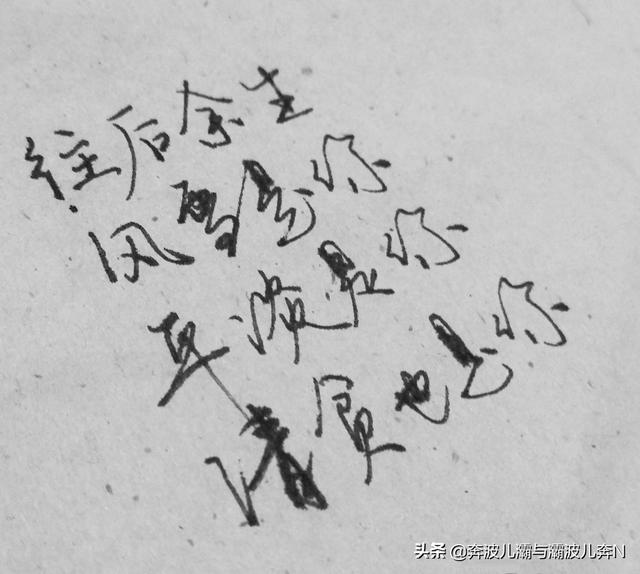 往后余生
风雪是你
平淡是你
清贫也是你
头条 @奔波儿灞与灞波儿奔N